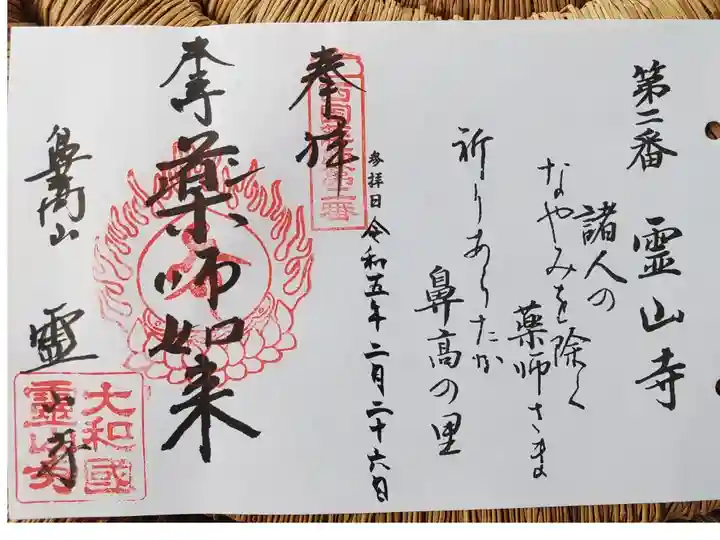 第二番 霊山寺
諸人の
なやみを除く
薬師さま
祈りあらたか
鼻高の里
参拝日 令和五年 二月 二十六日
奉拝
第二番
本尊 薬師如来
鼻高山 霊山寺
大和國
霊山寺